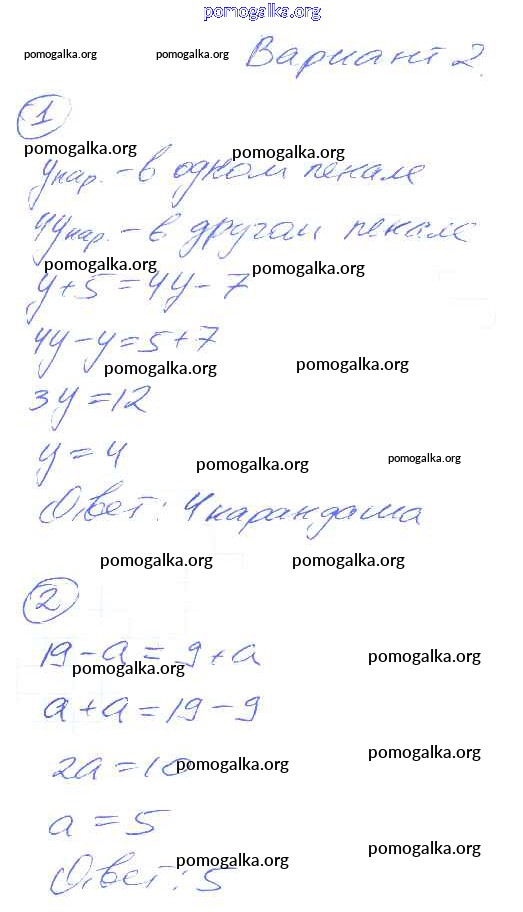 pomogalka.org
pomogalka.org pomogalka.org Вариант 2.
1
pomogalka.org pomogalka.org
y кар. - в одном пенале
4y кар. - в другом пенале
pomogalka.org pomogalka.org
y+5=4y-7
4y-y=5+7
pomogalka.org pomogalka.org
3y=12
y=4
pomogalka.org pomogalka.org
Ответ: 4 карандаша
pomogalka.org pomogalka.org
2
19-a=9+a
pomogalka.org pomogalka.org
a+a=19-9
2a=10
pomogalka.org pomogalka.org
a=5
pomogalka.org pomogalka.org
Ответ: 5